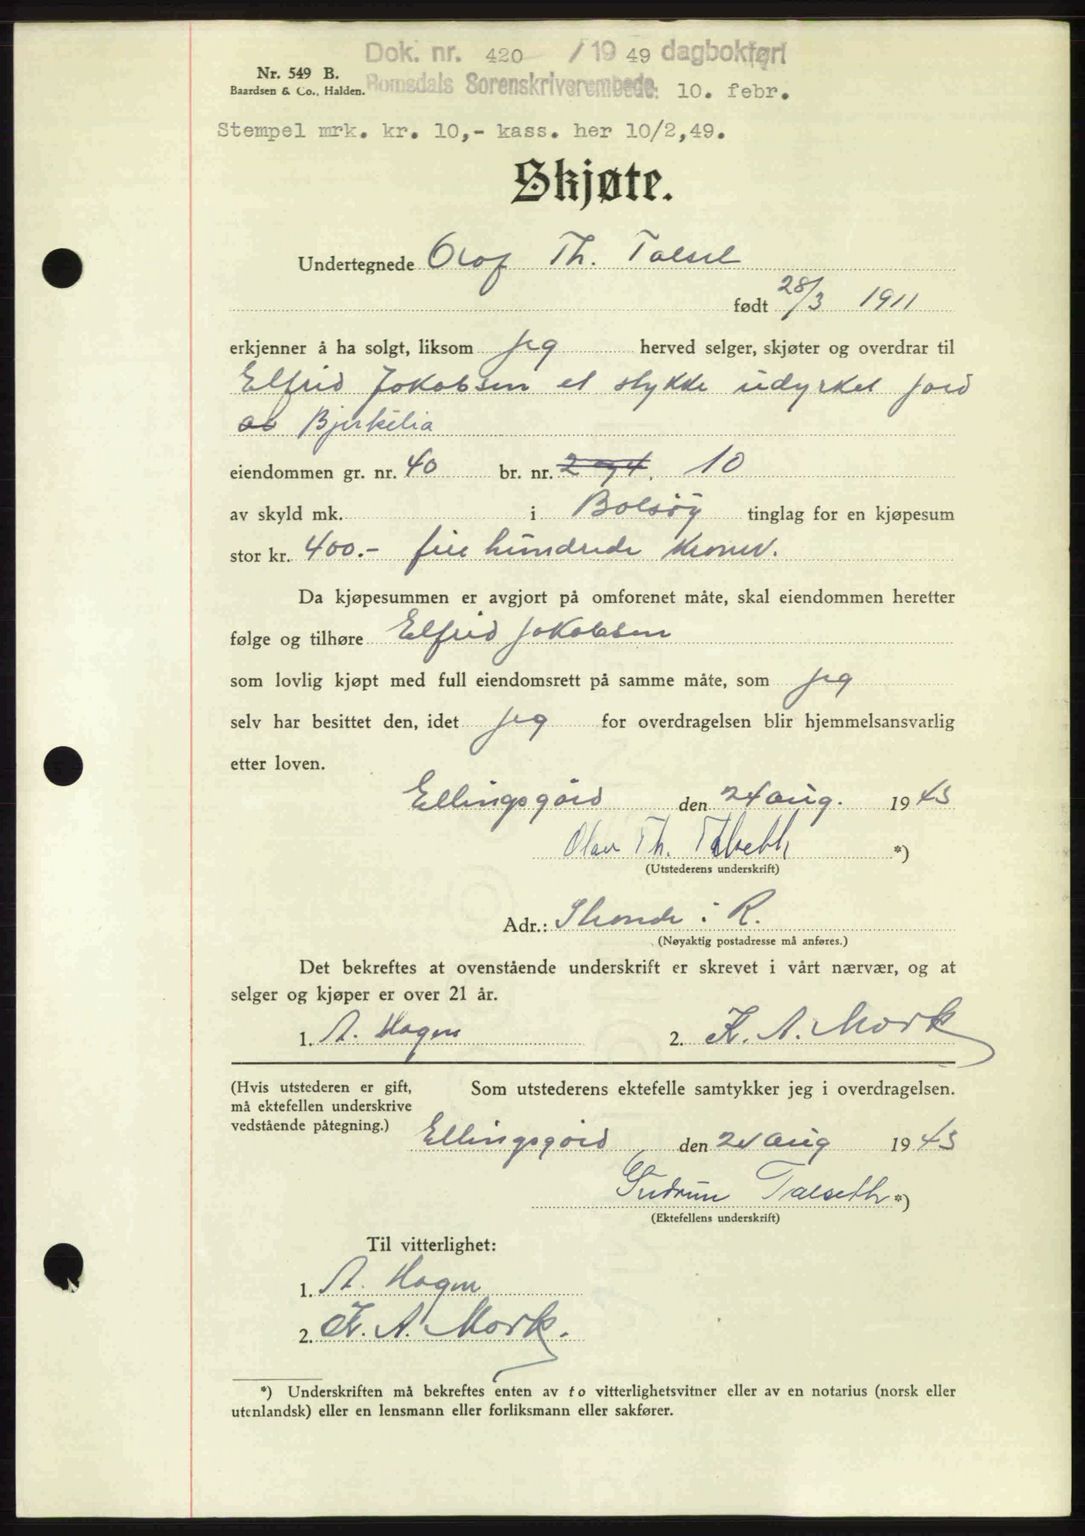 Dok. nr. 420 / 19 49 dagbokført
Nr. 549 B.
Baardsen & Co., Halden.
Romsdals Sorenskriverembede. 10. febr.
Stempel mrk. kr. 10,- kass. her 10/2,49.
Skjøte.
Undertegnede Olof Th. Talset
født 28/3 1911
erkjenner å ha solgt, liksom jeg herved selger, skjøter og overdrar til
Elfrid Jokobsen et stykke udyrket jord
av Bjerkelia
eiendommen gr. nr. 40 br. nr. 2 og 4. 10
av skyld mk. i Bolsøy tinglag for en kjøpesum
stor kr. 400.- fire hundrede kroner.
Da kjøpesummen er avgjort på omforenet måte, skal eiendommen heretter
følge og tilhøre Elfrid Jokobsen
som lovlig kjøpt med full eiendomsrett på samme måte, som jeg
selv har besittet den, idet jeg for overdragelsen blir hjemmelsansvarlig
etter loven.
Ellingsgård den 24 aug. 1943
Olav Th. Talseth *)
(Utstederens underskrift)
Adr.: i R.
(Nøyaktig postadresse må anføres.)
Det bekreftes at ovenstående underskrift er skrevet i vårt nærvær, og at
selger og kjøper er over 21 år.
1. A. Hagen 2. K. A. Mork
(Hvis utstederen er gift,
må ektefellen underskrive
vedstående påtegning.)
Som utstederens ektefelle samtykker jeg i overdragelsen.
Ellingsgård den 24 aug 1943
Gudrun Talseth *)
(Ektefellens underskrift)
Til vitterlighet:
1. A. Hagen
2. K. A. Mork.
*) Underskriften må bekreftes enten av to vitterlighetsvitner eller av en notarius (norsk eller
utenlandsk) eller en lensmann eller forliksmann eller sakfører.